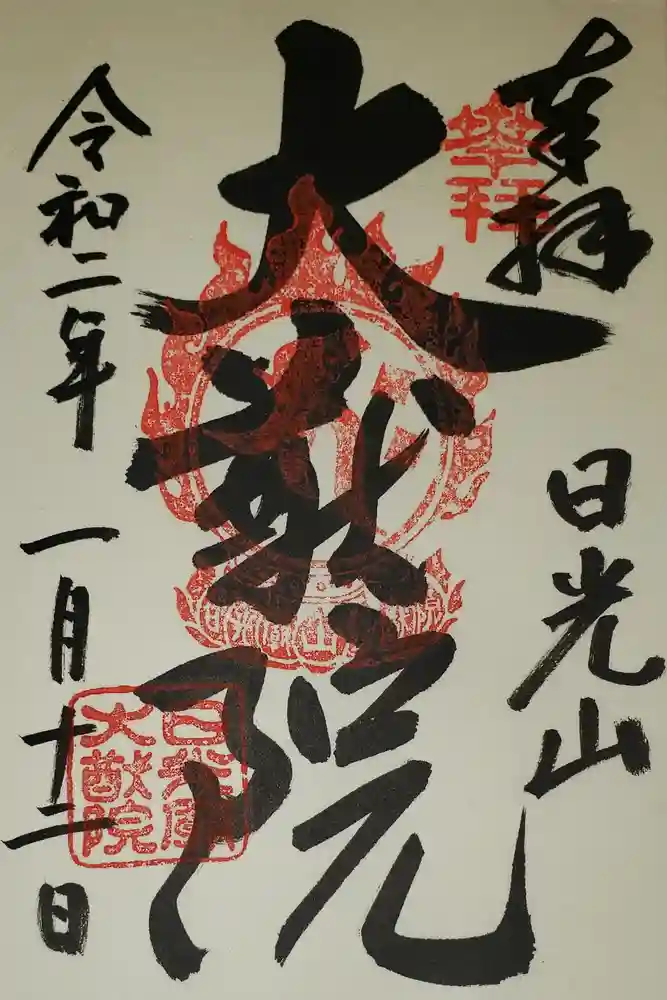 奉拝
日光山
大猷院
令和二年 一月十二日
奉拝
日光山
大猷院